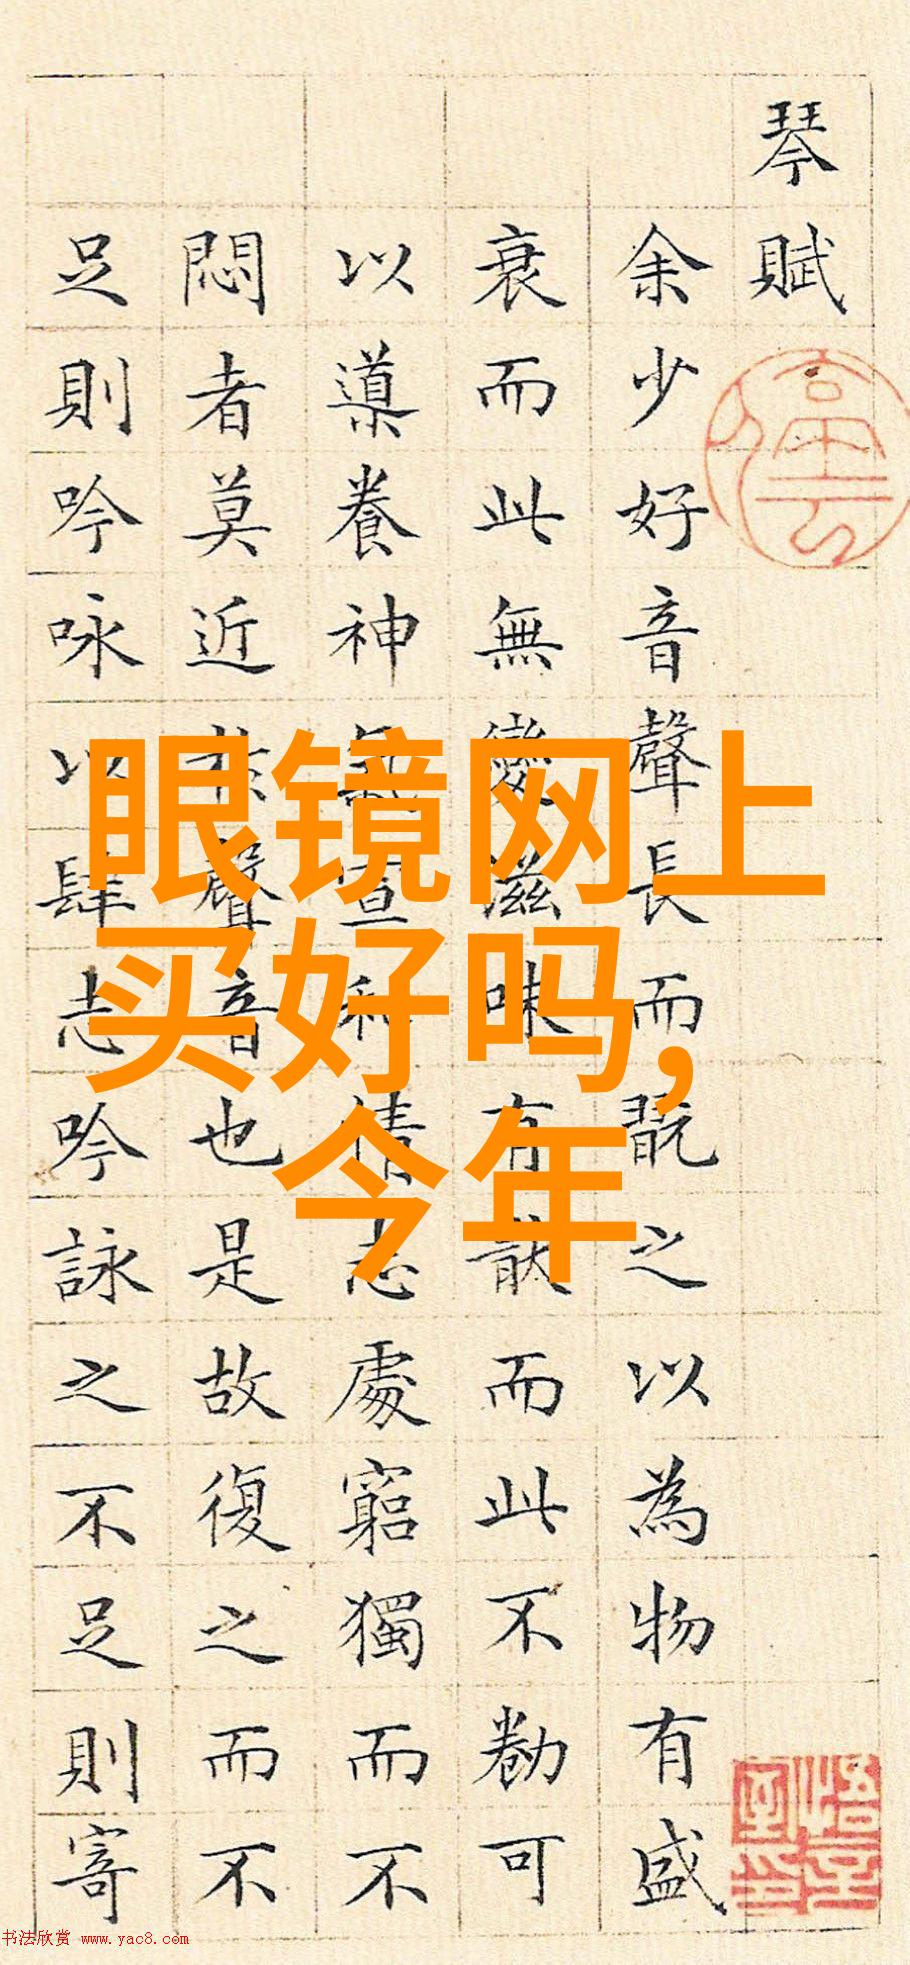 琴賦
余少好音聲長而翫之以為物有盛
衰而此無變滋味有猒而此不勌可
以導養神氣宣和情志處窮獨而不
悶者莫近於聲音也是故復之而不
足則吟咏以肆志吟詠之不足則寄
眼镜网上
买好吗,
今年
书法欣赏 www.yac8.com